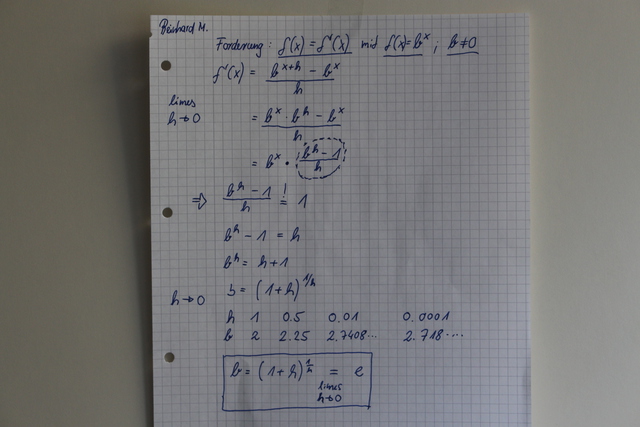 Reinhard M.
Forderung: f(x) = f'(x) mit f(x) = b^x ; b≠0
f'(x) = (b^(x+h) - b^x) / h
limes
h→0 = (b^x · b^h - b^x) / h
= b^x · (b^h - 1) / h
⇒ (b^h - 1) / h != 1
b^h - 1 = h
b^h = h+1
h→0 b = (1+h)^(1/h)
h 1 0.5 0.01 0.0001
b 2 2.25 2.7408... 2.718....
b = (1+h)^(1/h) = e
limes
h→0